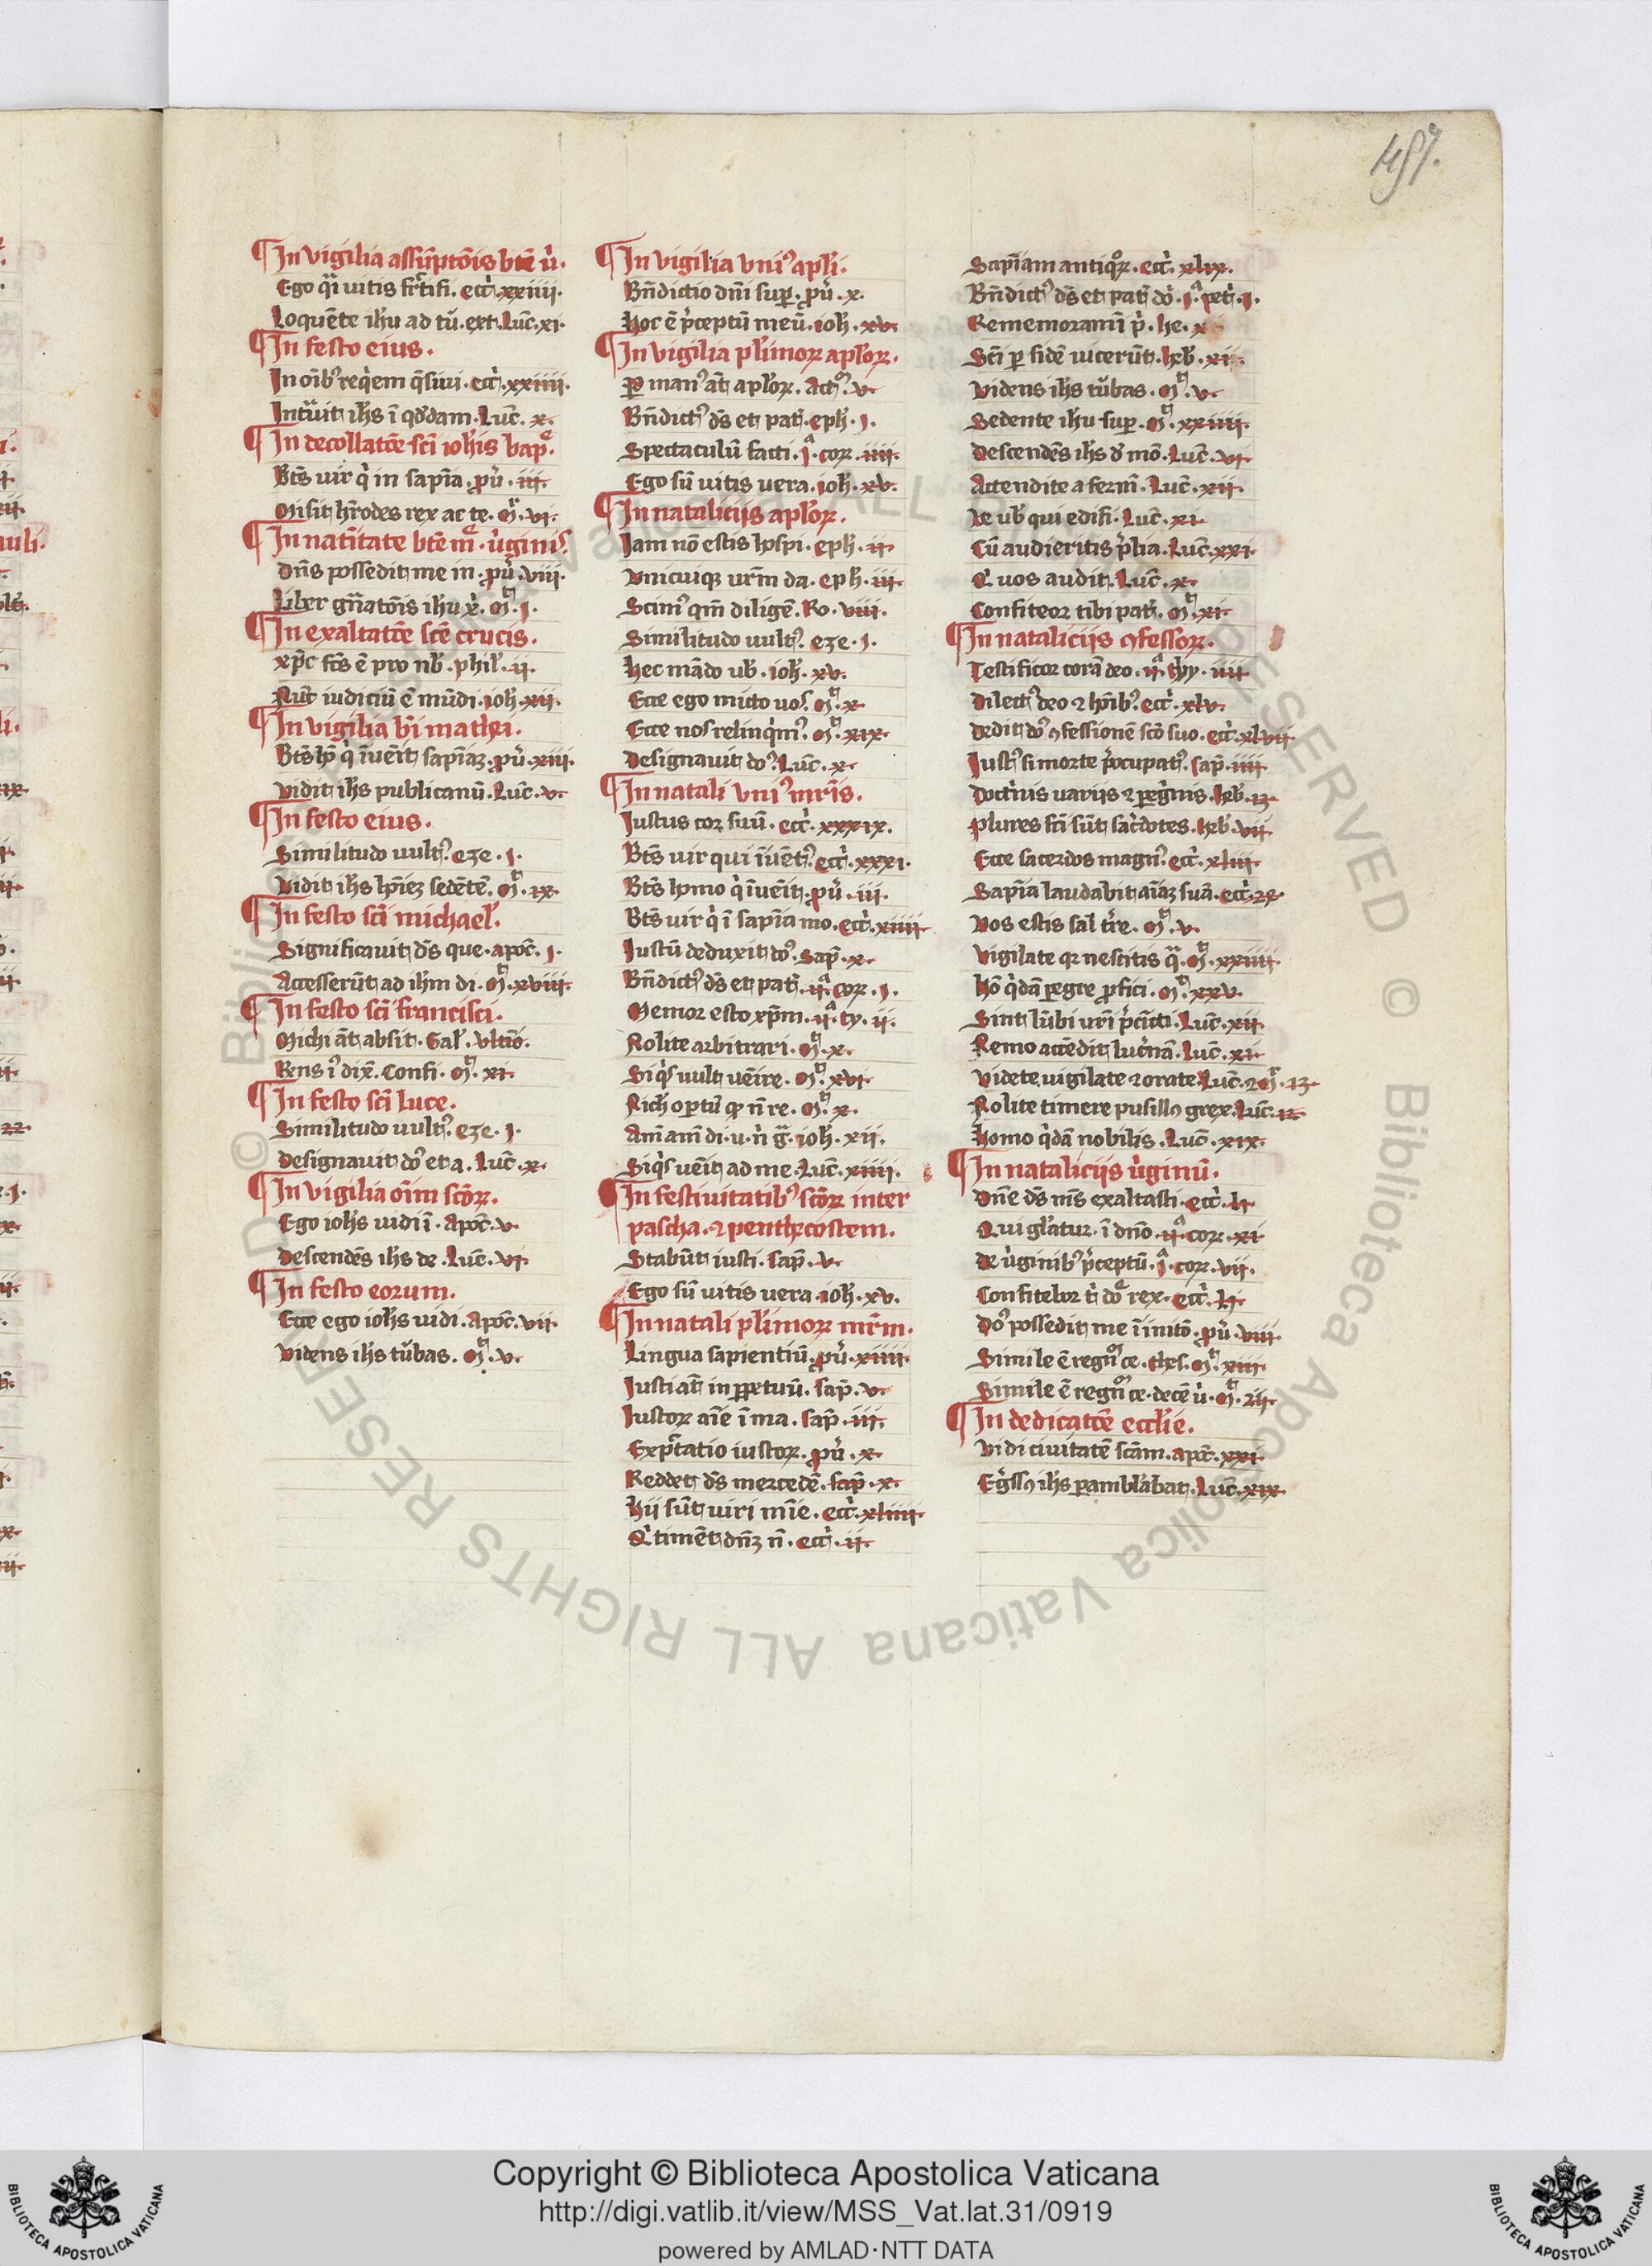 457.
¶ In vigilia assūptōis btē v̇.
Ego q̄i uitis fr̄tifi. ecc̄i. xxiiii.
Loquēte ihu ad tū. ext. Luc̄. xi.
¶ In festo eius.
In oīb⁹ req̇em q̄siui. ecc̄i. xxiiii.
Int̄uit ihs ī qd̄dam. Luc̄. x.
¶ In decollatōe sc̄i ioh̄is bap̄.
Bt̄s uir q̇ in sapīa. pů. iii.
Misit h̄rodes rex ac te. M̄. vi.
¶ In natīitate btē m̄. v̇ginis.
Dn̄s possedit me in. pů. viii.
Liber gn̄atōis ihu x̄. M̄. i.
¶ In exaltatōe scē crucis.
xp̄c fc̄s ē pro nb̄. phil̄. ii.
Nūc iudiciū ē mūdi. ioh̄. xii.
¶ In vigilia bi mathei.
Bt̄s hō q̇ īuēit sapīaz. pů. xiii.
Vidit ihs publicanū. Luc̄. v.
¶ In festo eius.
Similitudo uult⁹. eze. i.
Vidit ihs hoīez sedētē. M̄. ix.
¶ In festo sc̄i michael̄.
Significauit d̄s que. apoc̄. i.
Accesserūt ad ihm di. M̄. xviii.
¶ In festo sc̄i francisci.
Michi āt absit. Gal̄. vltīo.
Rens ī dix̄. Confi. M̄. xi.
¶ In festo sc̄i luce.
Similitudo uult⁹. eze. i.
Designauit do⁹ et a. Luc̄. x.
¶ In vigilia oīm sc̄oꝝ.
Ego ioh̄s uidi ī. apoc̄. v.
Descendēs ihs de. Luc̄. vi.
¶ In festo eorum.
Ecce ego ioh̄s uidi. apoc̄. vii.
Videns ihs tůbas. M̄. v.
¶ In vigilia vni⁹ apl̄i.
Bn̄dictio dn̄i sup. pů. x.
Hoc ē p̄ceptū meū. ioh̄. xv.
¶ In vigilia pl̄imoꝝ apl̄oꝝ.
ꝑ man⁹ āt apl̄oꝝ. act⁹. v.
Bn̄dict⁹ d̄s et pat̄. eph̄. i.
Spectaculū facti. i. cor. iiii.
Ego sū uitis uera. ioh̄. xv.
¶ In natalicijs apl̄oꝝ.
Iam nō estis hospi. eph̄. ii.
Vnicuiqꝫ ur̄m da. eph̄. iii.
Scim⁹ qm̄ diligē. Ro. viii.
Similitudo uult⁹. eze. i.
Hec mādo ub̄. ioh̄. xv.
Ecce ego mitto uos. M̄. x.
Ecce nos relinq̇m⁹. M̄. xix.
Designauit do⁹. Luc̄. x.
¶ In natali vni⁹ mr̄is.
Iustus cor suū. ecc̄i. xxxix.
Bt̄s uir qui īuēt⁹. ecc̄i. xxxi.
Bt̄s homo q̇ īuēit. pů. iii.
Bt̄s uir q̇ ī sapīa mo. ecc̄i. xiiii.
Iustū deduxit do⁹. Sap̄. x.
Bn̄dict⁹ d̄s et pat̄. ii. cor. i.
Memor esto xp̄m. ii. ty. ii.
Nolite arbitrari. M̄. x.
Siq̇s uult uēire. M̄. xvi.
Nich̄ optū qꝫ n̄ re. M̄. x.
Am̄ am̄ di. u. n̓ ḡ. ioh̄. xii.
Siq̇s uēit ad me. Luc̄. xiiii.
¶ In festiuitatib⁹ sc̄oꝝ inter
pascha. ⁊ penthecostem.
Stabūt iusti. sap̄. v.
Ego sū uitis uera. ioh̄. xv.
¶ In natali pl̄imoꝝ mr̄m.
Lingua sapientiū. pů. xiiii.
Iusti āt in ꝑpetuū. sap̄. v.
Iustoꝝ aīe ī ma. sap̄. iii.
Exp̄ctatio iustoꝝ. pů. x.
Reddet d̄s mercedē. sap̄. x.
Hij sūt uiri mīe. ecc̄i. xliiii.
Q̇ timēt dn̄ꝫ n̄. ecc̄i. ii.
Sapīam antiq̊ꝝ. ecc̄i. xlix.
Bn̄dict⁹ d̄s et pat̄ do̓. i. pet̄. i.
Rememoramī p̄. he. x
Sc̄i ꝑ fidē uicerūt. heb̄. xii.
Videns ihs tůbas. M̄. v.
Sedente ihu sup. M̄. xxiiii.
Descendēs ihs d̓ mō. Luc̄. vi.
Attendite a ferm̄. Luc̄. xii.
Ve ub̄ qui edifi. Luc̄. xi.
Cū audieritis p̄lia. Luc̄. xxi.
Q̇ uos audit. Luc̄. x.
Confiteor tibi pat̄. M̄. xi.
¶ In natalicijs ꝯfessoꝝ.
Testificor corā deo. ii. thy. iiii.
Dilect⁹ deo ⁊ hoīb⁹. ecc̄i. xlv.
Dedit do⁹ ꝯfessionē sc̄o suo. ecc̄i. xlvii.
Iust⁹ si morte p̄ocupat⁹. sap̄. iiii.
Doct̓nis uarijs ⁊ peg̓nis. heb̄. 13.
Plures fc̄i sūt sac̓dotes. heb̄. vii.
Ecce sacerdos magn⁹. ecc̄i. xliiii.
Sapīa laudabit aīaꝫ suā. ecc̄i. 24.
Vos estis sal t̓re. M̄. v.
Vigilate qꝛ nescitis q̄. M̄. xxiiii.
Hō q̇dā ꝑegre ꝓfici. M̄. xxv.
Sint lūbi ur̄i p̄cīcti. Luc̄. xii.
Nemo accēdit luc̓nā. Luc̄. xi.
Videte uigilate ⁊ orate. Luc̄. ⁊ M̄. 13.
Nolite timere pusillꝯ grex. Luc̄. 12.
Homo q̇dā nobilis. Luc̄. xix.
¶ In natalicijs v̇ginū.
Dn̄e d̄s m̄s exaltasti. ecc̄i. li.
Qui gl̄iatur. ī dn̄o. ii. cor. xi.
De v̇ginib⁹ p̄ceptū. i. cor. vii.
Confitebor t̄ do̓ rex. ecc̄i. li.
Do⁹ possedit me ī initō. pů. viii.
Simile ē regn̊ ce. thes. M̄. xiii.
Simile ē regn̊ ce. decē v̇. M̄. 25.
¶ In dedicatōe eccl̄ie.
Vidi ciuitatē sc̄am. apoc̄. xxi.
Eg̓ssꝯ ihs ꝑambl̄abat. Luc̄. xix.
© Biblioteca Apostolica Vaticana ALL RIGHTS RESERVED
Copyright © Biblioteca Apostolica Vaticana
http://digi.vatlib.it/view/MSS_Vat.lat.31/0919
powered by AMLAD·NTT DATA
BIBLIOTECA APOSTOLICA VATICANA
BIBLIOTECA APOSTOLICA VATICANA